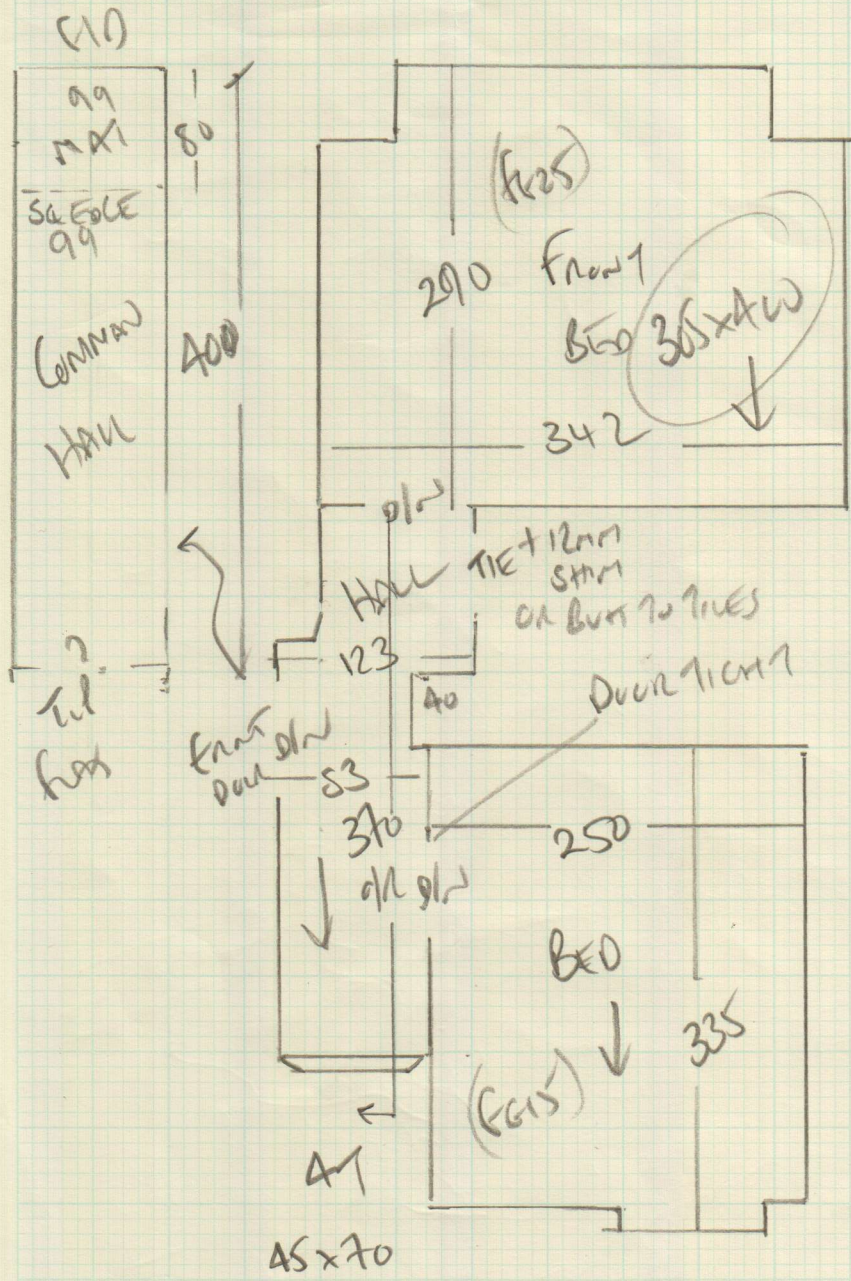 99
MAT
80
SQ EDGE
99
COMMON
HALL
400
290
FRONT
BED
365x400
342
D/N
HALL
TIE + 12MM
SHIM
OR BUTT TO TILES
123
40
DOOR TIGHT
FRNT
DOOR
D/N
83
370
D/N
250
BED
335
4T
45x70